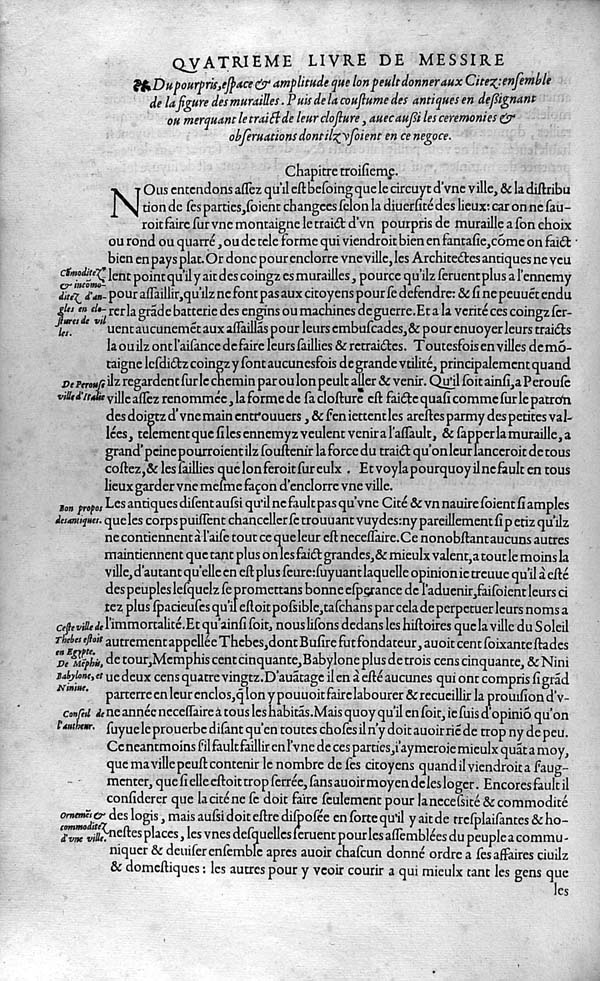 QVATRIEME LIVRE DE MESSIRE
Du pourpris, espace & amplitude que lon peult donner aux Citez: ensemble
de la figure des murailles. Puis de la coustume des antiques en deßignant
ou merquant le traict de leur closture, auec außi les ceremonies &
obseruations dont ilz vsoient en ce negoce.
Chapitre troisieme.
NOus entendons assez qu'il est besoing que le circuyt d'vne ville, & la distribu
tion de ses parties, soient changees selon la diuersité des lieux: car on ne sau-
roit faire sur vne montaigne le traict d'vn pourpris de muraille a son choix
ou rond ou quarré, ou de tele forme qui viendroit bien en fantasie, cōme on faict
bien en pays plat. Or donc pour enclorre vne ville, les Architectes antiques ne veu
Cōmoditez
& incōmo-
ditez d'an-
gles en clo-
stures de vil
les.
lent point qu'il y ait des coingz es murailles, pource qu'ilz seruent plus a l'ennemy
pour assaillir, qu'ilz ne font pas aux citoyens pour se defendre: & si ne peuuēt endu
rer la grāde batterie des engins ou machines de guerre. Et a la verité ces coingz ser-
uent aucunemēt aux assaillās pour leurs embuscades, & pour enuoyer leurs traicts
la ou ilz ont l'aisance de faire leurs saillies & retraictes. Toutesfois en villes de mō-
taigne lesdictz coingz y sont aucunesfois de grande vtilité, principalement quand
De Perouse
ville d'Italie
ilz regardent sur le chemin par ou lon peult aller & venir. Qu'il soit ainsi, a Perouse
ville assez renommée, la forme de sa closture est faicte quasi comme sur le patron
des doigtz d'vne main entr'ouuers, & s'en iettent les arestes parmy des petites val-
lées, telement que si les ennemyz veulent venir a l'assault, & sapper la muraille, a
grand' peine pourroient ilz soustenir la force du traict qu'on leur lanceroit de tous
costez, & les saillies que lon feroit sur eulx. Et voyla pourquoy il ne fault en tous
lieux garder vne mesme façon d'enclorre vne ville.
Bon propos
des antiques.
Les antiques disent aussi qu'il ne fault pas qu'vne Cité & vn nauire soient si amples
que les corps puissent chanceller se trouuant vuydes: ny pareillement si petiz qu'ilz
ne contiennent à l'aise tout ce que leur est necessaire. Ce nonobstant aucuns autres
maintiennent que tant plus on les faict grandes, & mieulx valent, a tout le moins la
ville, d'autant qu'elle en est plus seure: suyuant laquelle opinion ie treuue qu'il à esté
des peuples lesquelz se promettans bonne esperance de l'aduenir, faisoient leurs ci
tez plus spacieuses qu'il estoit possible, taschans par cela de perpetuer leurs noms a
Ceste ville de
Thebes estoit
en Egypte.
De Mēphis,
Babylone, et
Niniue.
l'immortalité. Et qu'ainsi soit, nous lisons dedans les histoires que la ville du Soleil
autrement appellée Thebes, dont Busire fut fondateur, auoit cent soixante stades
de tour, Memphis cent cinquante, Babylone plus de trois cens cinquante, & Nini
ue deux cens quatre vingtz. D'auātage il en à esté aucunes qui ont compris si grād
parterre en leur enclos, q̄ lon y pouuoit faire labourer & recueillir la prouision d'v-
Conseil de
l'autheur.
ne année necessaire à tous les habitās. Mais quoy qu'il en soit, ie suis d'opiniō qu'on
suyue le prouerbe disant qu'en toutes choses il n'y doit auoir riē de trop ny de peu.
Ce neantmoins s'il fault faillir en l'vne de ces parties, i'aymeroie mieulx quāt a moy,
que ma ville peust contenir le nombre de ses citoyens quand il viendroit a s'aug-
menter, que si elle estoit trop serrée, sans auoir moyen de les loger. Encores fault il
considerer que la cité ne se doit faire seulement pour la necessité & commodité
Ornemēs &
commoditez
d'vne ville.
des logis, mais aussi doit estre disposée en sorte qu'il y ait de tresplaisantes & ho-
nestes places, les vnes desquelles seruent pour les assemblées du peuple a commu-
niquer & deuiser ensemble apres auoir chascun donné ordre a ses affaires ciuilz
& domestiques: les autres pour y veoir courir a qui mieulx tant les gens que
les